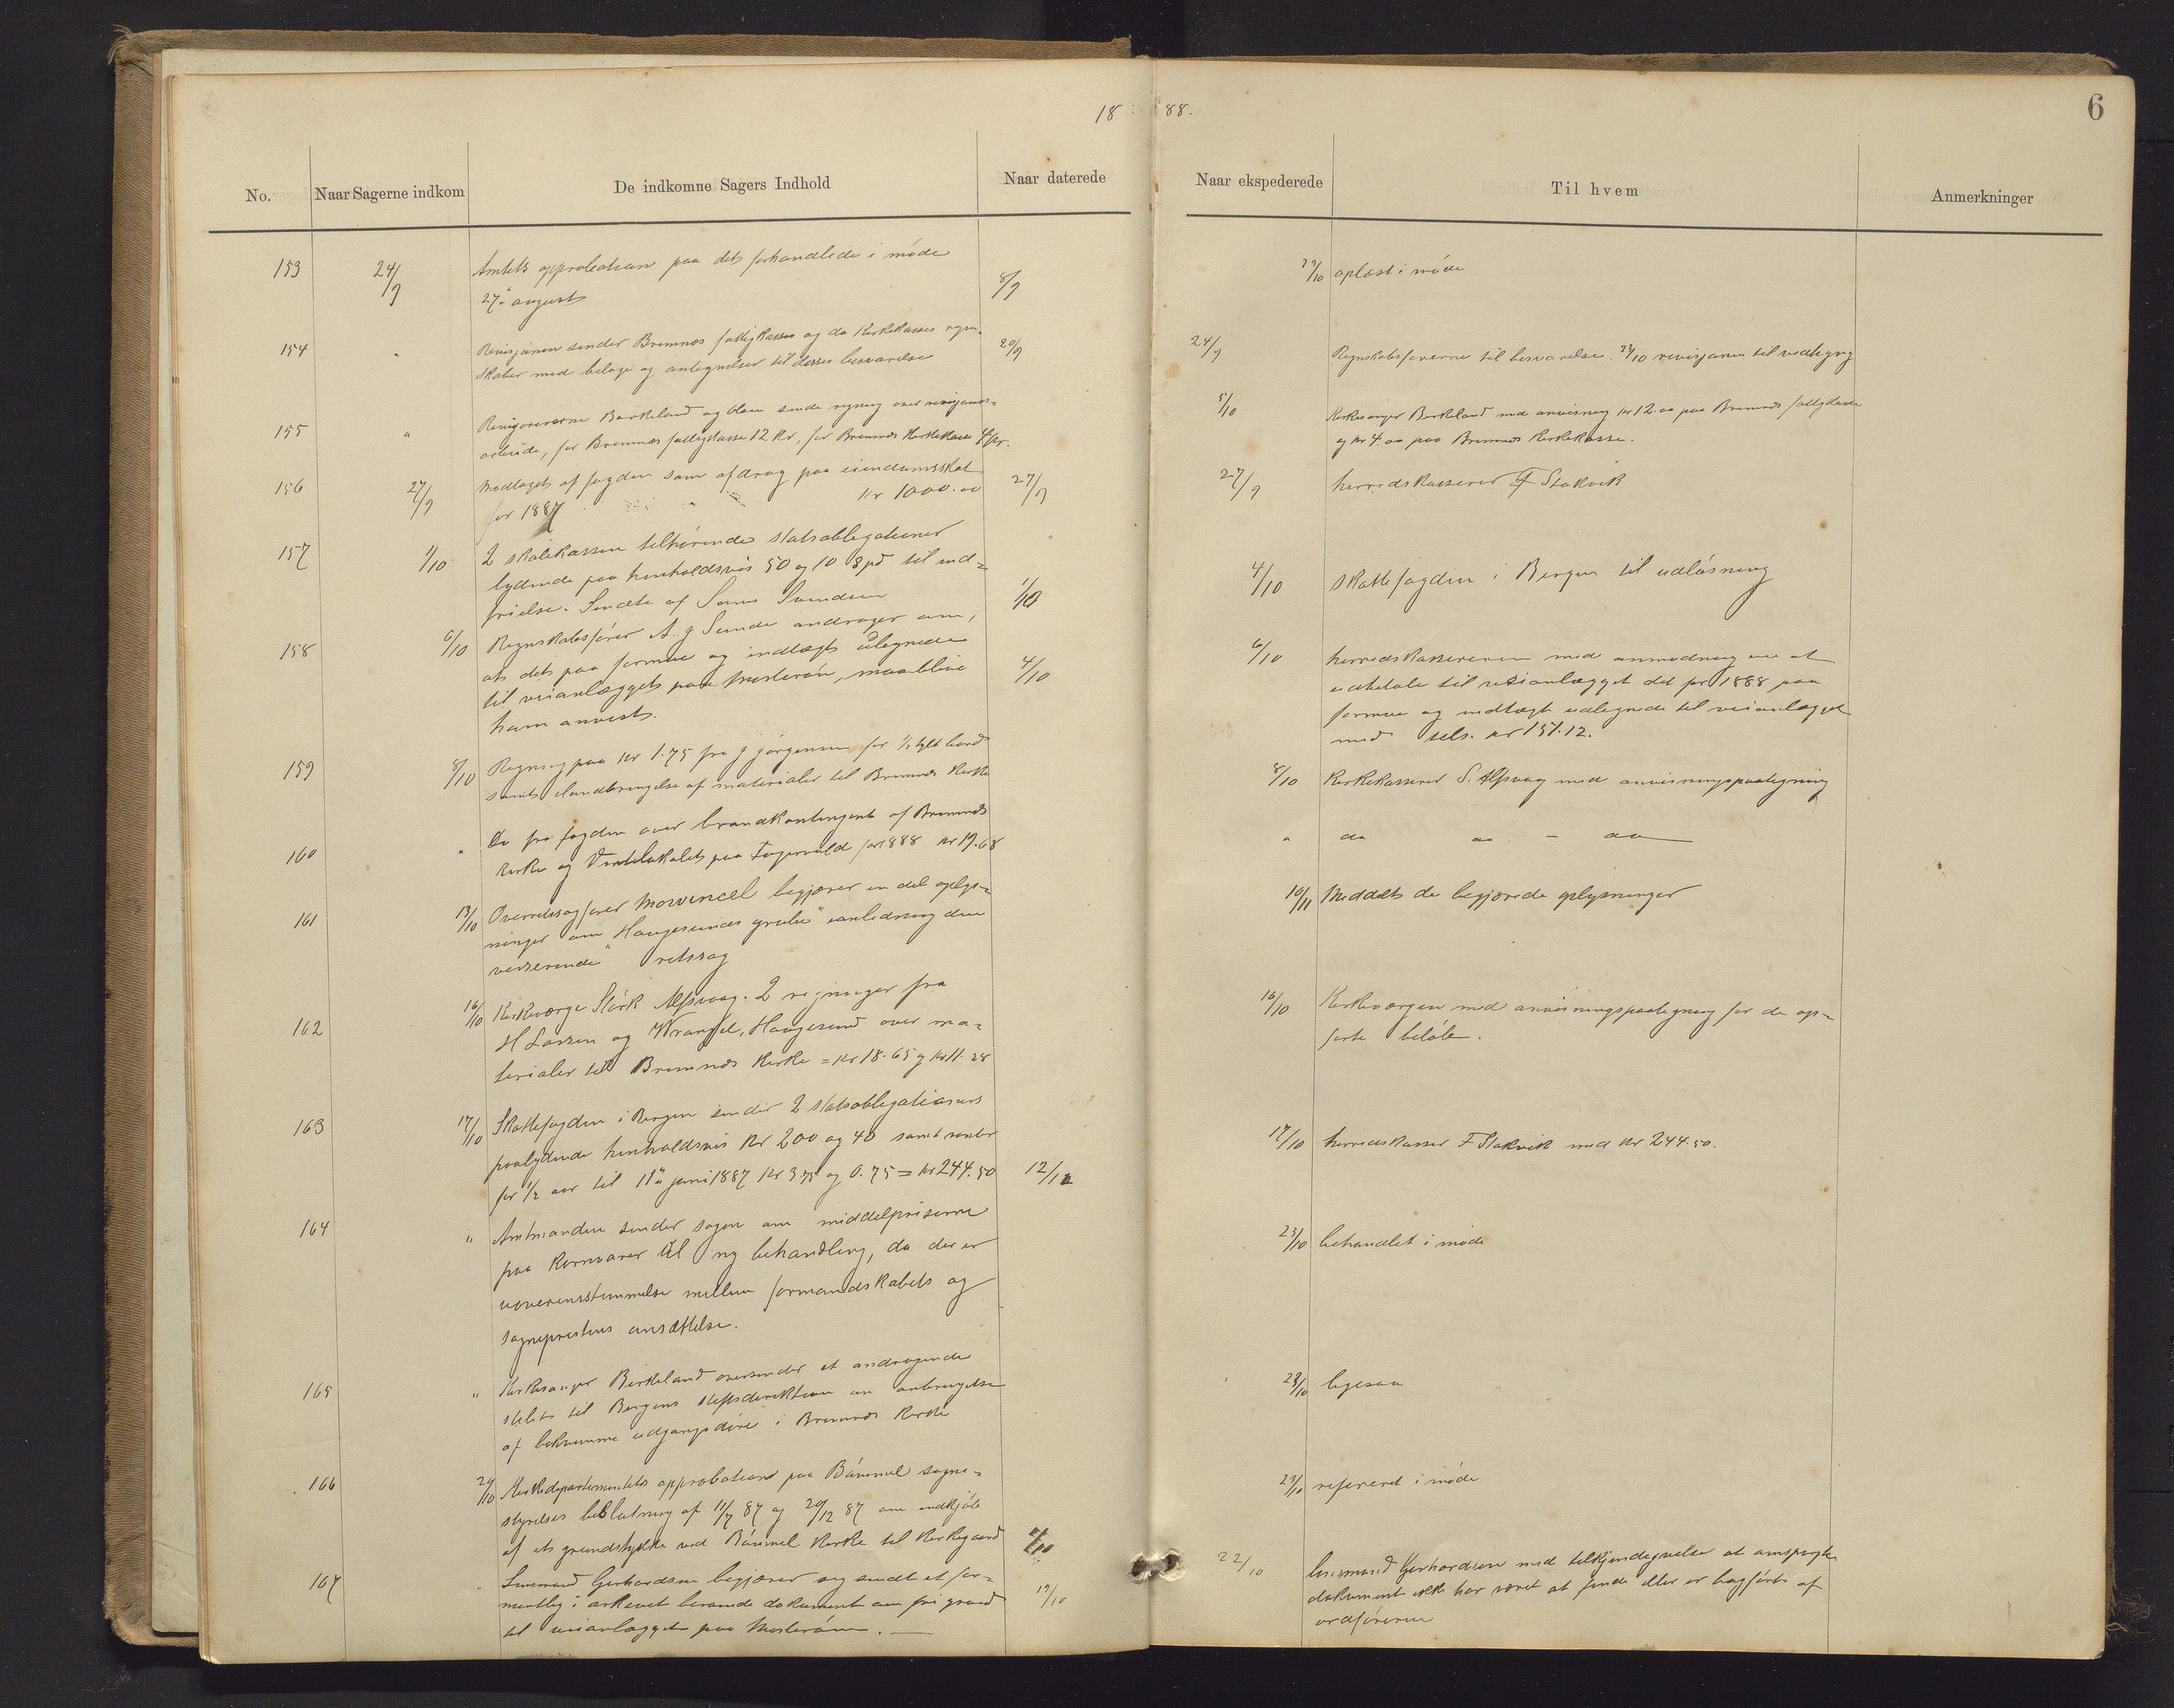 18 88.
6
No.
Naar Sagerne indkom
De indkomne Sagers Indhold
Naar daterede
Naar ekspederede
Til hvem
Anmerkninger
153 24/9 Amtets approbation paa det forhandlede i møde
27de august 8/9 23/10 oplæst i møde
154 " Revisjonen sender Bremnes fattigkasses og do Kirkekasses regn-
skaber med belage og antegnelser til disses besvarelse 20/9 24/9 Regnskabsførerne til besvarelse. 23/10 revisjonen til vedtegng
155 " Revisorerne Birkeland og Olsen sende regning over revisjons-
arbeide, for Bremnes fattigkasse 12 Kr, for Bremnes Kirkekasse 4 Kr.
5/10 Kirkesanger Birkeland med anvisning kr 12.00 paa Bremnes fattigkasse
og kr 4.00 paa Bremnes Kirkekasse.
156 27/9 Modtaget af fogden som afdrag paa eiendomsskat
for 1887 Kr 1000.00 27/9 27/9 herredskasserer F Stokvik
157 1/10 2 skolekassen tilhørende statsobligationer
lydende paa henholdsvis 50 og 10 Spd til ind-
frielse. Sendte af 1/10
4/10 Skattefogden i Bergen til udløsning
158 6/10 Regnskabsfører A. J Sunde andrager om,
at det paa formue og indtægt udlignede
til veianlægget paa Mosterøn, maa blive
ham anvist. 4/10
6/10 herredskassereren med anmodning om at
udbetale til veianlægget det for 1888 paa
formue og indtægt udlignede til veianlægget
med tils. kr 151.12.
159 8/10 Regning paa Kr 1.75 fra J Jørgensen for 1/2 tylt bord
samt ilandbringelse af materialer til Bremnes Kirke
8/10 Kirkekasserer S. Alfsvaag med anvisningspaategning
160 " Do fra fogden over brandkontingent af Bremnes
Kirke og paa Fagervold for 1888 Kr 19.68
" do do - do
161 13/10 Overretssagfører Mowinckel begjærer en del oplys-
ninger om "Haugesunds grube" i anledning den
verserende retssag
10/11 Meddelt de begjærede oplysninger
162 16/10 Kirkeværge Størk Alfsvaag. 2 regninger fra
H Larsen og Wrangel, Haugesund over ma-
terialer til Bremnes Kirke = Kr 18.65 og Kr 11.28
16/10 Kirkeværgen med anvisningspaategning for de op-
førte beløb.
163 17/10 Skattefogden i Bergen sender 2 statsobligationers
paalydende henholdsvis Kr 200 og 40 samt renter
for 1/2 aar til 11te juni 1887 Kr 3.75 og 0.75 = Kr 244.50 12/10
17/10 herredskasser F Stokvik med Kr 244.50.
164 " Amtmanden sender sagen om middelpriserne
paa Kornvarer til ny behandling, da der er
uoverensstemmelse mellem formandskabets og
sogneprestens ansættelse.
23/10 behandlet i møde
165 " Kirkesanger Birkeland oversender et andragende
stilet til Bergens stiftsdirektion om anbringelse
af bekvemme udgangsdøre i Bremnes Kirke
23/10 ligesaa
166 20/10 Kirkedepartementets approbation paa Bømmel sogne-
styrelses beslutning af 11/7 87 og 20/12 87 om indkjøb
af et grundstykke ved Bømmel Kirke til Kirkegaard
23/10 refereret i møde
167 Lensmand Gerhardsen begjærer sig sendt et for-
mentlig i arkivet beroende dokument om fri grund
til veianlægget paa Mosterøen. 19/10
22/10 lensmand Gerhardsen med tilkjendegivelse at omspurgte
dokument ikke har været at finde eller er bogført af
ordføreren